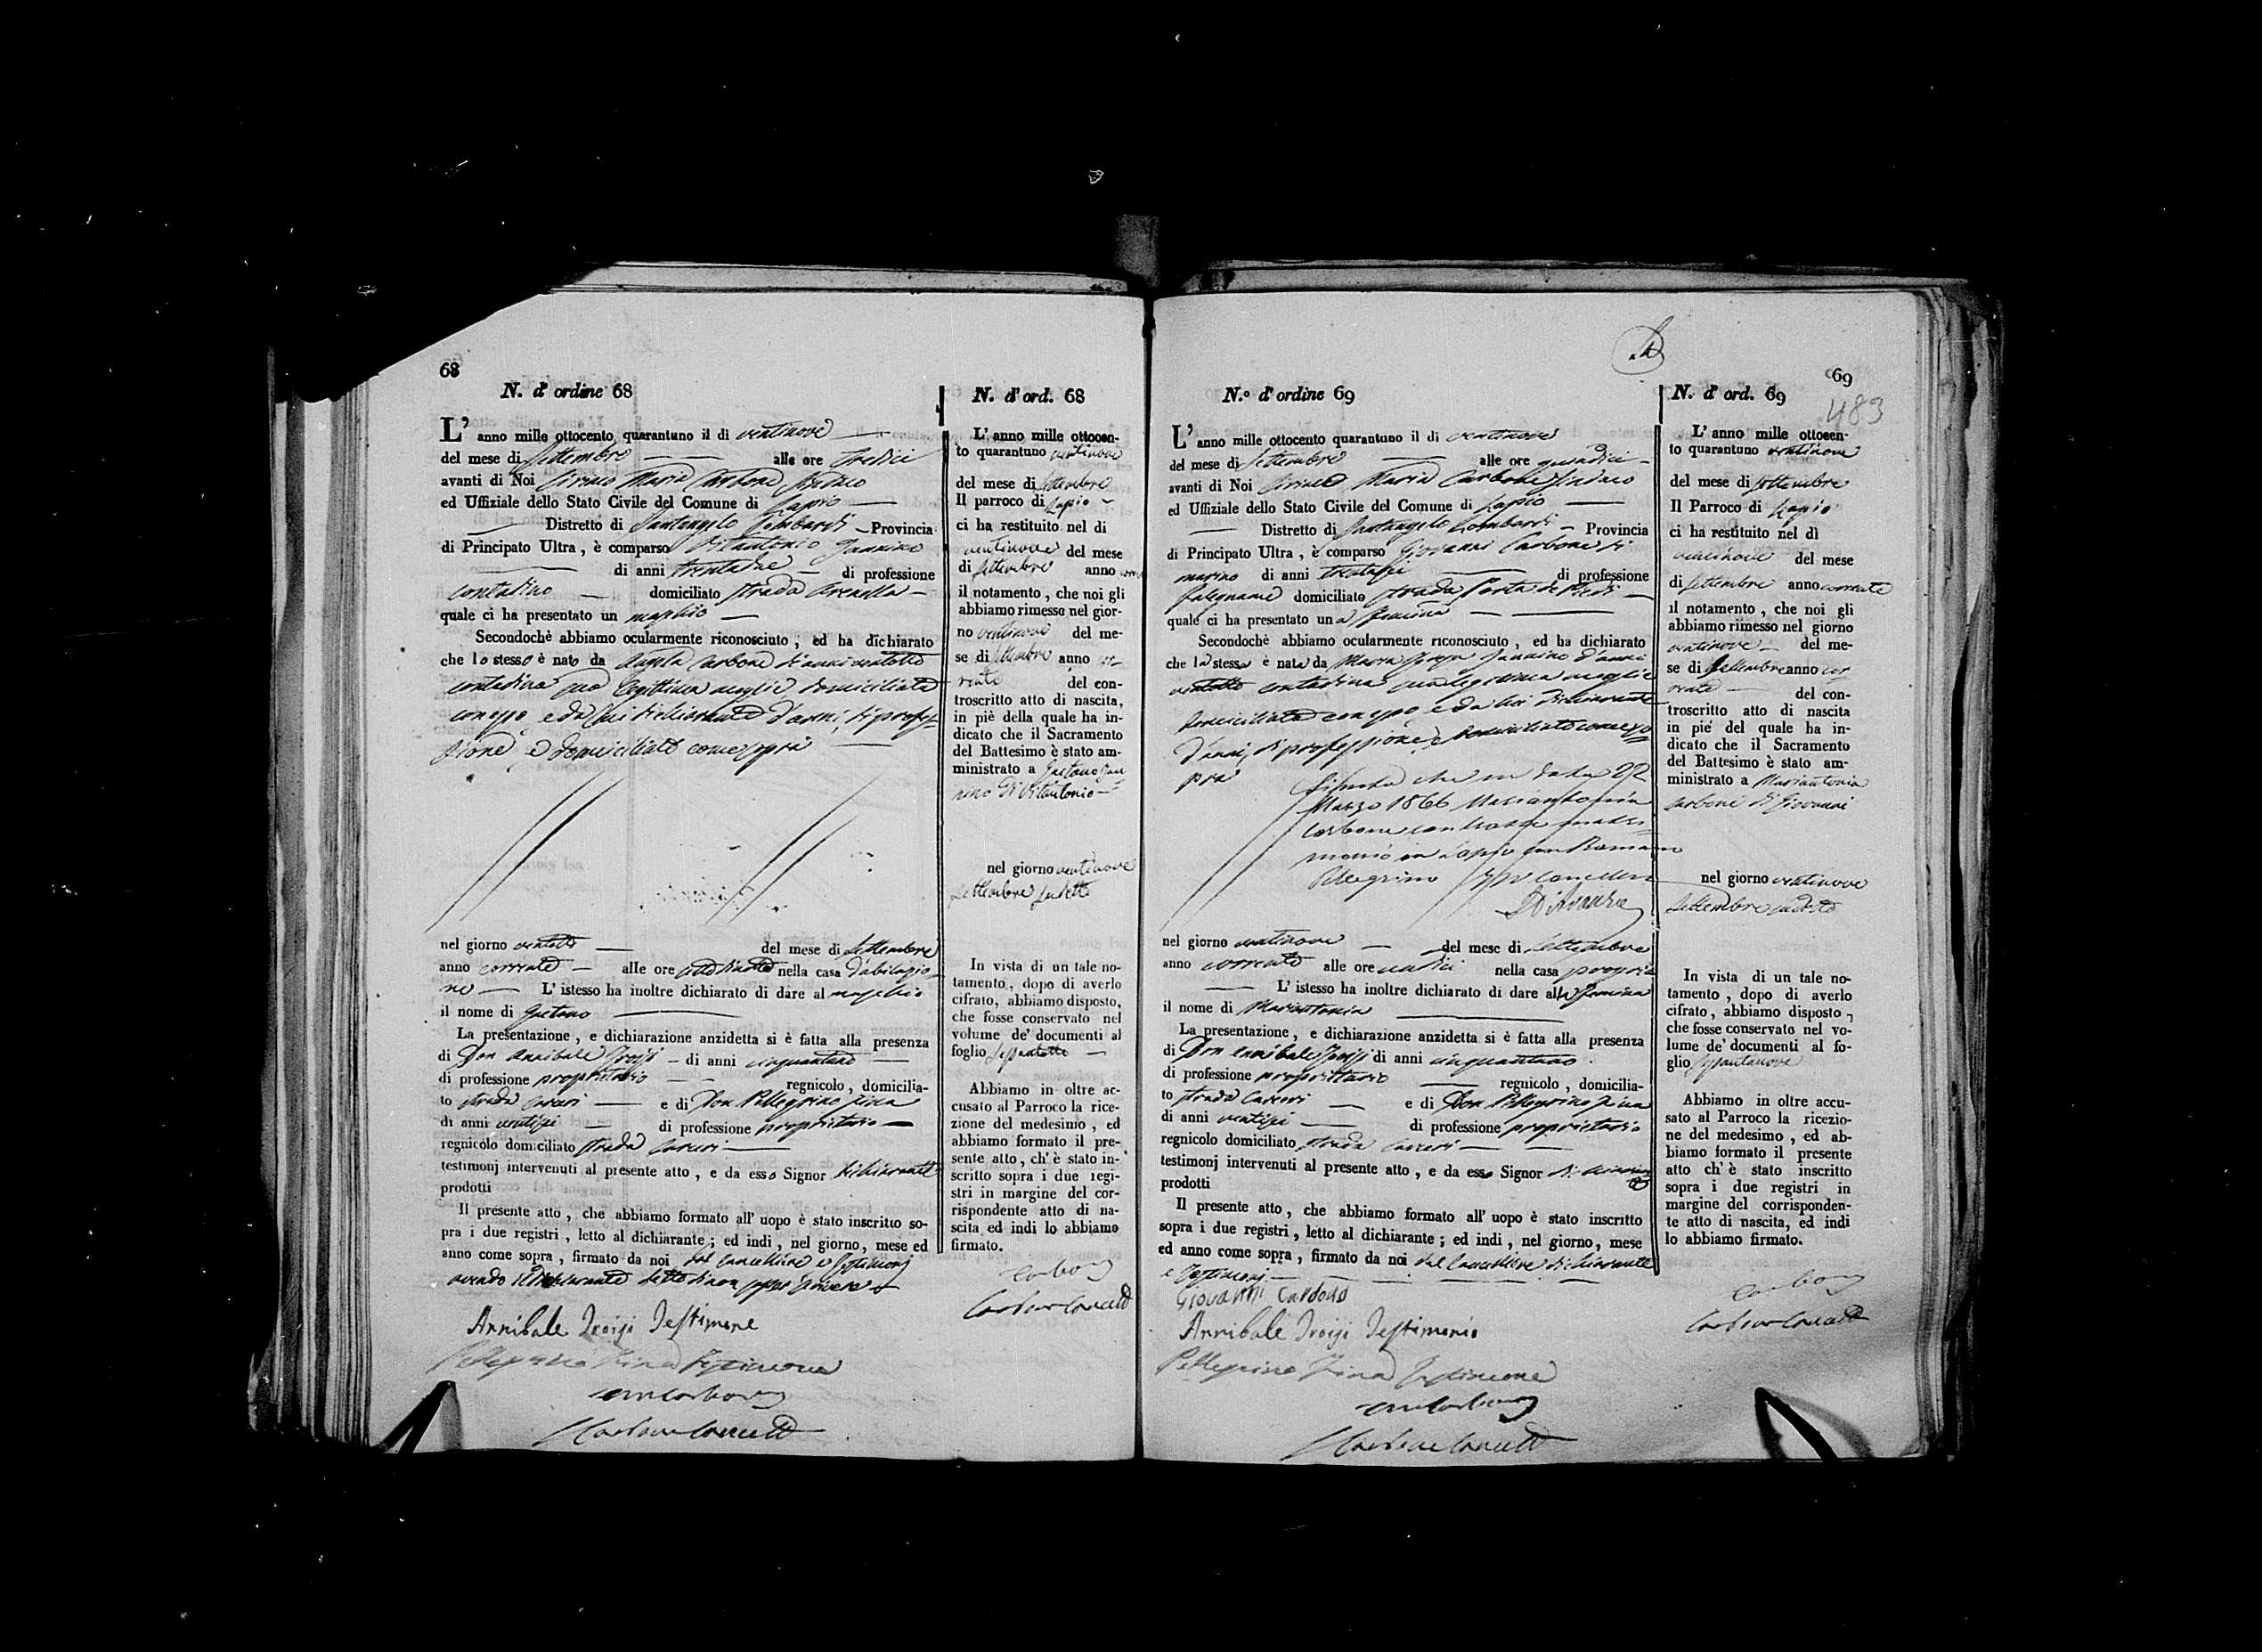 68
N. d' ordine 68
L' anno mille ottocento quarantuno il di ventinove
del mese di Settembre alle ore tredici
avanti di Noi Maria Carbone Sindaco
ed Uffiziale dello Stato Civile del Comune di Lapio
Distretto di Santangelo Lombardi Provincia
di Principato Ultra, è comparso Vitantonio Iannino
di anni trentadue di professione
contadino domiciliato strada Arenella
quale ci ha presentato un maschio
Secondochè abbiamo ocularmente riconosciuto, ed ha dichiarato
che lo stesso è nato da Angela Carbone d'anni ventotto
contadina sua legittima moglie domiciliata
con esso e da lui dichiarante d'anni, di profes-
sione, e domiciliato come sopra
nel giorno ventotto del mese di Settembre
anno corrente alle ore nella casa d'abitazio-
ne L' istesso ha inoltre dichiarato di dare al maschio
il nome di Gaetano
La presentazione, e dichiarazione anzidetta si è fatta alla presenza
di Don Annibale Troisi di anni cinquantuno
di professione proprietario regnicolo, domicilia-
to strada Carceri e di Don Pellegrino Pina
di anni ventisei di professione proprietario
regnicolo domiciliato strada Carceri
testimonj intervenuti al presente atto, e da esso Signor dichiarante
prodotti
Il presente atto, che abbiamo formato all' uopo è stato inscritto so-
pra i due registri, letto al dichiarante; ed indi, nel giorno, mese ed
anno come sopra, firmato da noi dal Cancelliere e testimonj
avendo il dichiarante detto di non saper scrivere
Annibale Troisi Testimone
Pellegrino Pina Testimone
Carbone
Carbone Cancell
N. d' ord. 68
L' anno mille ottocen-
to quarantuno ventinove
del mese di Settembre
Il parroco di Lapio
ci ha restituito nel di
ventinove del mese
di Settembre anno
il notamento, che noi gli
abbiamo rimesso nel gior-
no ventinove del me-
se di Settembre anno cor-
rente del con-
troscritto atto di nascita,
in piè della quale ha in-
dicato che il Sacramento
del Battesimo è stato am-
ministrato a Gaetano Ian-
nino di Vitantonio
nel giorno ventinove
Settembre sudetto
In vista di un tale no-
tamento, dopo di averlo
cifrato, abbiamo disposto,
che fosse conservato nel
volume de' documenti al
foglio sessantotto
Abbiamo in oltre ac-
cusato al Parroco la rice-
zione del medesimo, ed
abbiamo formato il pre-
sente atto, ch' è stato in-
scritto sopra i due regi-
stri in margine del cor-
rispondente atto di na-
scita, ed indi lo abbiamo
firmato.
Carbone
Carbone Cancell
69
483
N.º d' ordine 69
L' anno mille ottocento quarantuno il di ventinove
del mese di Settembre alle ore quindici
avanti di Noi Maria Carbone Sindaco
ed Uffiziale dello Stato Civile del Comune di Lapio
Distretto di Santangelo Lombardi Provincia
di Principato Ultra, è comparso Giovanni Carbone di
marino di anni trentasei di professione
falegname domiciliato strada Porta de Piedi
quale ci ha presentato una femina
Secondochè abbiamo ocularmente riconosciuto, ed ha dichiarato
che la stessa è nata da Maria Iannino d'anni
ventotto contadina sua legittima moglie
domiciliata con esso e da lui dichiarante
d'anni, di professione, e domiciliato come so-
pra
Si nota che in data 22
Marzo 1866 Mariantonia
Carbone contrasse matri-
monio in Lapio con Romano
Pellegrino
nel giorno ventinove del mese di Settembre
anno corrente alle ore undici nella casa propria
L' istesso ha inoltre dichiarato di dare alla femina
il nome di Mariantonia
La presentazione, e dichiarazione anzidetta si è fatta alla presenza
di Don Annibale Troisi di anni cinquantuno
di professione proprietario regnicolo, domicilia-
to strada Carceri e di Don Pellegrino Pina
di anni ventisei di professione proprietario
regnicolo domiciliato strada Carceri
testimonj intervenuti al presente atto, e da esso Signor dichiarante
prodotti
Il presente atto, che abbiamo formato all' uopo è stato inscritto
sopra i due registri, letto al dichiarante; ed indi, nel giorno, mese
ed anno come sopra, firmato da noi dal Cancelliere dichiarante
e testimonj
Giovanni Carbone
Annibale Troisi Testimonio
Pellegrino Pina Testimone
Carbone
Carbone Cancell
N. d' ord. 69
L' anno mille ottocen-
to quarantuno ventinove
del mese di Settembre
Il Parroco di Lapio
ci ha restituito nel dì
ventinove del mese
di Settembre anno corrente
il notamento, che noi gli
abbiamo rimesso nel giorno
ventinove del me-
se di Settembre anno cor-
rente del con-
troscritto atto di nascita
in piè del quale ha in-
dicato che il Sacramento
del Battesimo è stato am-
ministrato a Mariantonia
Carbone di Giovanni
nel giorno ventinove
Settembre sudetto
In vista di un tale no-
tamento, dopo di averlo
cifrato, abbiamo disposto,
che fosse conservato nel vo-
lume de' documenti al fo-
glio sessantanove
Abbiamo in oltre accu-
sato al Parroco la ricezio-
ne del medesimo, ed ab-
biamo formato il presente
atto ch' è stato inscritto
sopra i due registri in
margine del corrisponden-
te atto di nascita, ed indi
lo abbiamo firmato.
Carbone
Carbone Cancell